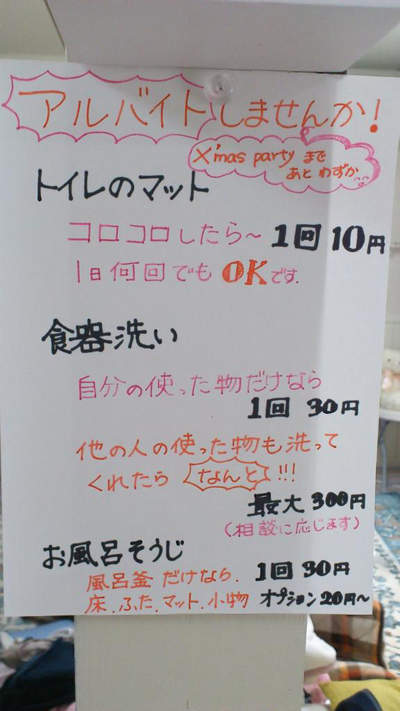 アルバイトしませんか!
X'mas party まで
あと わずか
トイレのマット
コロコロしたら〜 1回 10円
1日何回でも OKです.
食器洗い
自分の使った物だけなら
1回 30円
他の人の使った物も洗って
くれたら なんと!!!
最大 300円
(相談に応じます)
お風呂そうじ
風呂釜 だけなら. 1回 30円
床.ふた.マット.小物 オプション 20円〜